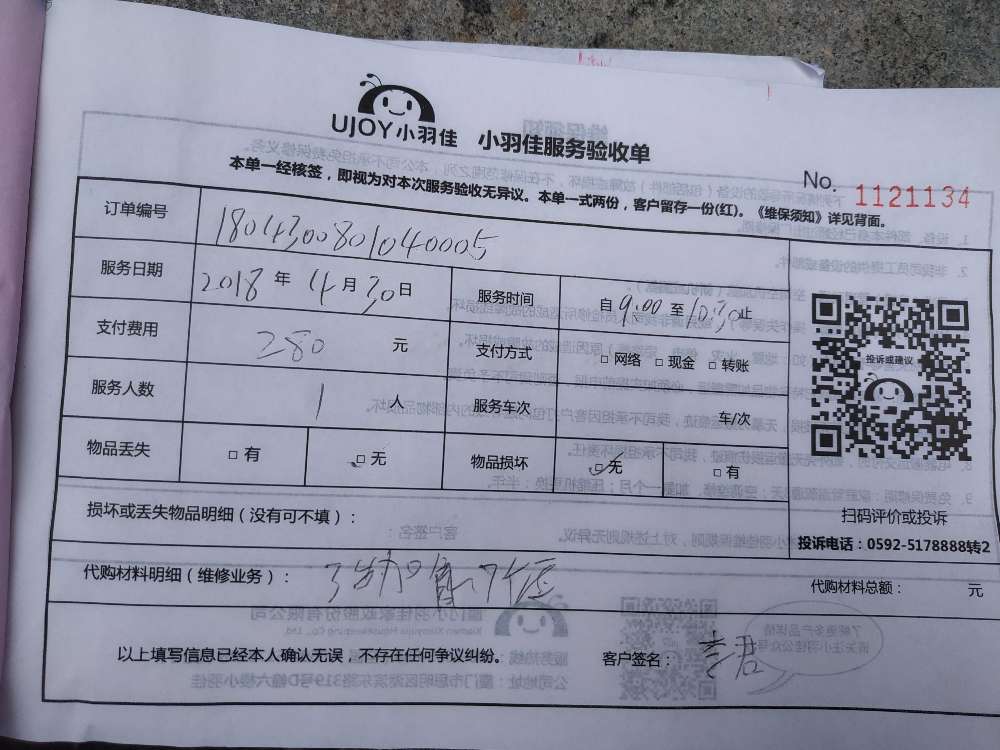 UJOY小羽佳 小羽佳服务验收单
No. 1121134
本单一经核签，即视为对本次服务验收无异议。本单一式两份，客户留存一份(红)。《维保须知》详见背面。
订单编号 1804300801040005
服务日期 2018年4月30日 服务时间 自9:00至10:30止
支付费用 280 元 支付方式 □网络 □现金 □转账
服务人数 1 人 服务车次 车/次
物品丢失 □有 □无 物品损坏 □无 □有
投诉或建议
扫码评价或投诉
投诉电话：0592-5178888转2
损坏或丢失物品明细（没有可不填）：
代购材料明细（维修业务）： 代购材料总额： 元
以上填写信息已经本人确认无误，不存在任何争议纠纷。 客户签名：李君